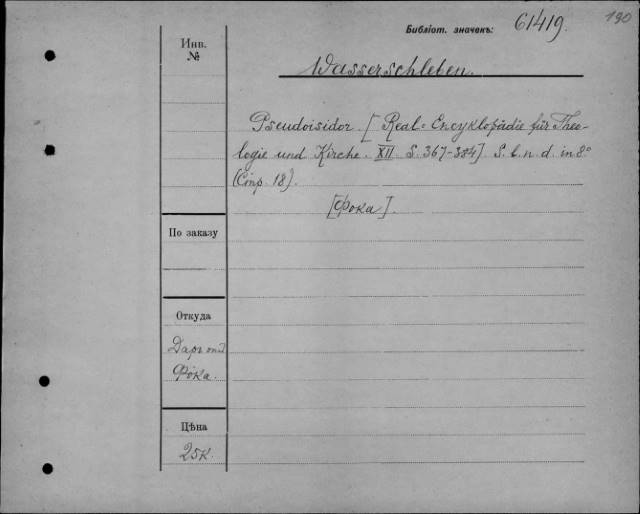 190
Библіот. значекъ: 61419.
Инв.
№
Wasserschleben.
Pseudoisidor. [Real-Encyklopädie für Theo-
logie und Kirche. XII S. 367-384] S. l. n. d. in 8°
(Стр. 18).
[Фока].
По заказу
Откуда
Даръ отд
Фока.
Цѣна
25к.